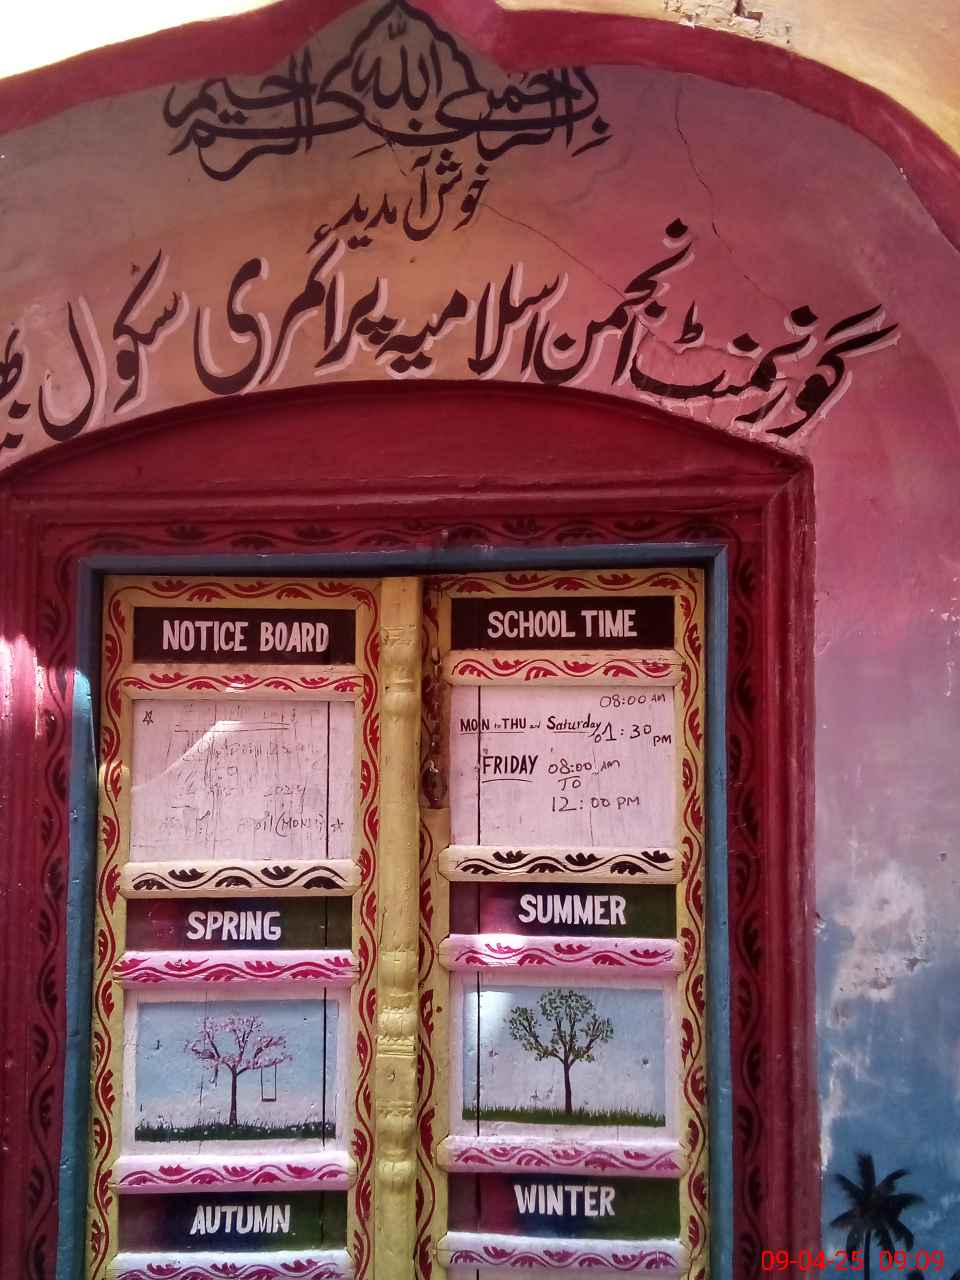 بسم الله الرحمن الرحيم
خوش آمدید
گورنمنٹ انجمن اسلامیہ پرائمری سکول
NOTICE BOARD
SCHOOL TIME
08:00 AM
MON to THU and Saturday 01:30 PM
FRIDAY 08:00 AM
TO
12:00 PM
(MON)
SPRING
SUMMER
AUTUMN
WINTER
09-04-25 09:09